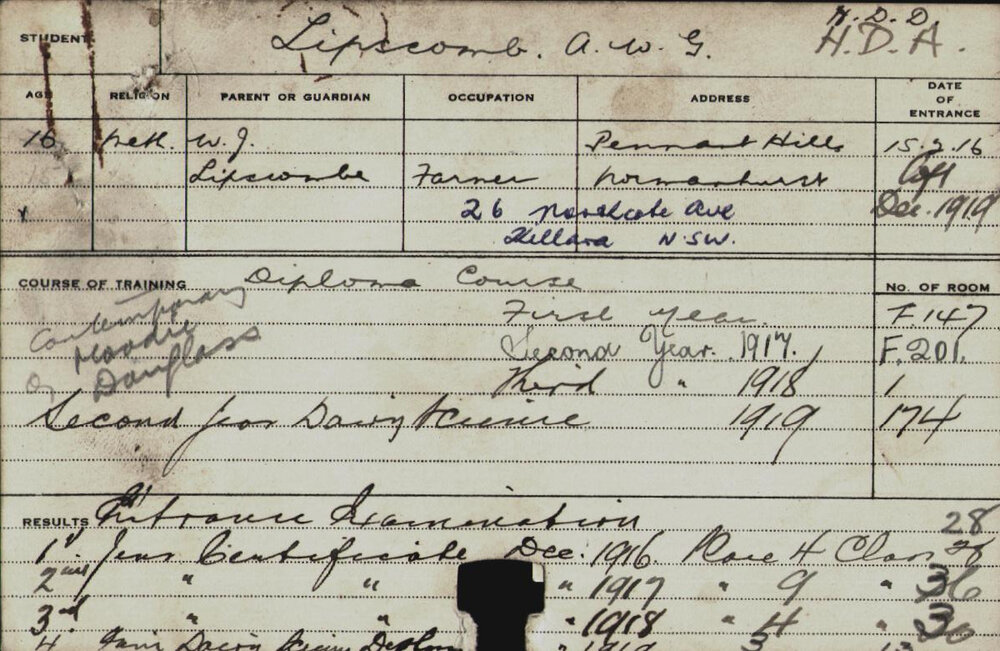 H.D.D.
STUDENT Lipscomb. A. W. G. H.D.A.
AGE RELIGION PARENT OR GUARDIAN OCCUPATION ADDRESS DATE OF ENTRANCE
16 Meth. W. J. Pennant Hills 15.2.16
Lipscombe Farmer Normanhurst Left
26 Northcote Ave Dec. 1919
Killara N.S.W.
COURSE OF TRAINING Diploma Course No. OF ROOM
Contemporary First Year F.147
Moodie Second Year. 1917. F.201.
Douglass Third " 1918 1
Second Year Dairy Science 1919 174
RESULTS Entrance Examination 28
1st Year Certificate Dec. 1916. Place 4 Class
2nd " " " 1917 " 9 " 36
3rd " " " 1918 " 4 " 30
Dairy Science 1919 3